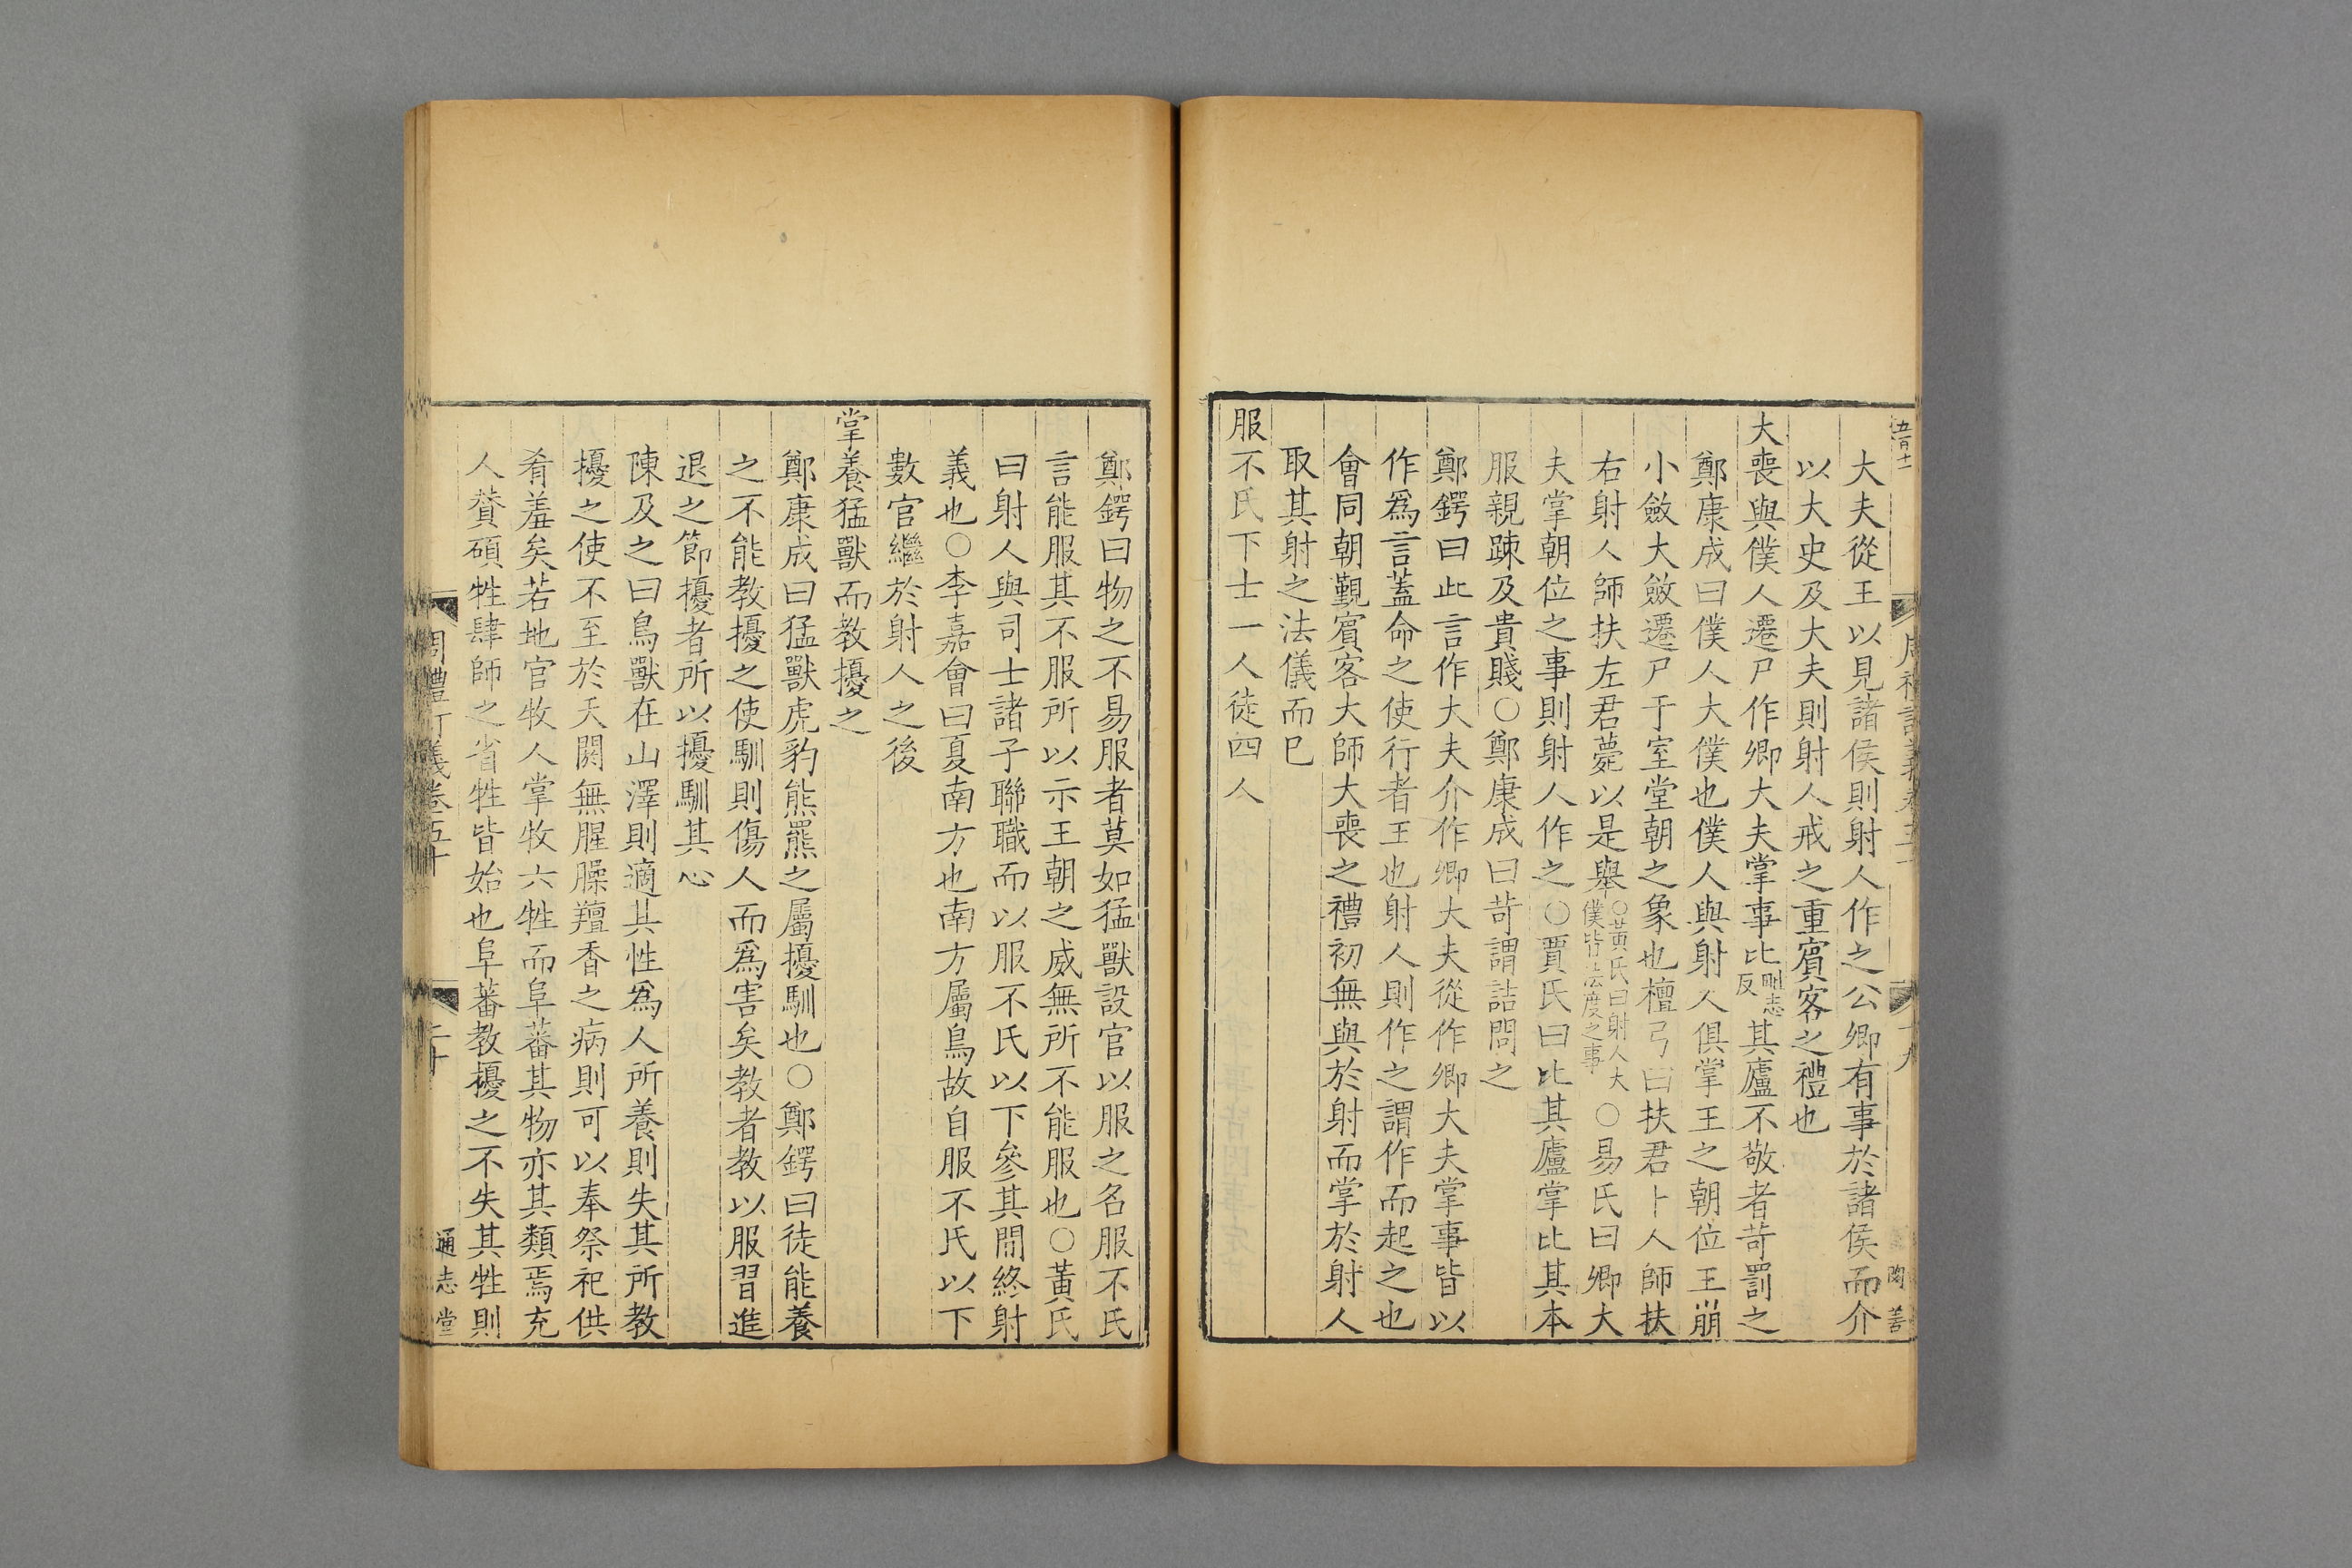 五百十
大夫從王以見諸侯則射人作之公卿有事於諸侯而介
以大史及大夫則射人戒之重賓客之禮也
大喪與僕人遷尸作卿大夫掌事比毗志反其廬不敬者苛罰之
鄭康成曰僕人大僕也僕人與射人俱掌王之朝位王崩
小斂大斂遷尸于室堂朝之象也檀弓曰扶君卜人師扶
右射人師扶左君薨以是舉○黃氏曰射人大僕皆法度之事○易氏曰卿大
夫掌朝位之事則射人作之○賈氏曰比其廬掌比其本
服親踈及貴賤○鄭康成曰苛謂詰問之
鄭鍔曰此言作大夫介作卿大夫從作卿大夫掌事皆以
作爲言蓋命之使行者王也射人則作之謂作而起之也
會同朝覲賓客大師大喪之禮初無與於射而掌於射人
取其射之法儀而巳
服不氏下士一人徒四人
鄭鍔曰物之不易服者莫如猛獸設官以服之名服不氏
言能服其不服所以示王朝之威無所不能服也○黃氏
曰射人與司士諸子聯職而以服不氏以下參其間終射
義也○李嘉會曰夏南方也南方屬鳥故自服不氏以下
數官繼於射人之後
掌養猛獸而教擾之
鄭康成曰猛獸虎豹熊羆之屬擾馴也○鄭鍔曰徒能養
之不能教擾之使馴則傷人而爲害矣教者教以服習進
退之節擾者所以擾馴其心
陳及之曰鳥獸在山澤則適其性爲人所養則失其所教
擾之使不至於夭閼無腥臊羶香之病則可以奉祭祀供
肴羞矣若地官牧人掌牧六牲而阜蕃其物亦其類焉充
人贊碩牲肆師之省牲皆始也阜蕃教擾之不失其牲則
周禮訂義卷五十
二十
通志堂